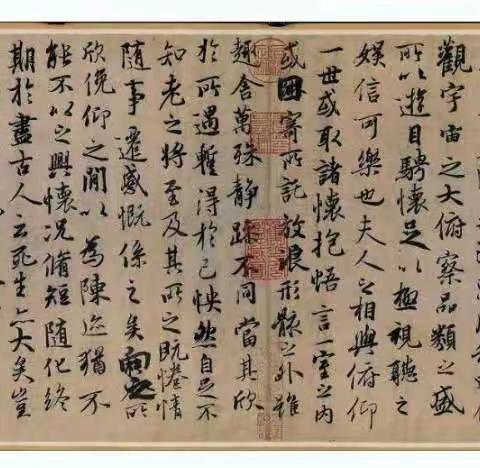 觀宇宙之大俯察品類之盛
所以遊目騁懷足以極視聽之
娛信可樂也夫人之相與俯仰
一世或取諸懷抱悟言一室之內
或因寄所託放浪形骸之外雖
趣舍萬殊靜躁不同當其欣
於所遇蹔得於己怏然自足不
知老之將至及其所之既惓情
隨事遷感慨係之矣向之所
欣俛仰之閒以為陳迹猶不
能不以之興懷況脩短隨化終
期於盡古人云死生亦大矣豈